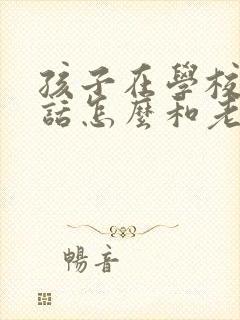 孩子在學校
話怎麼和老
暢音